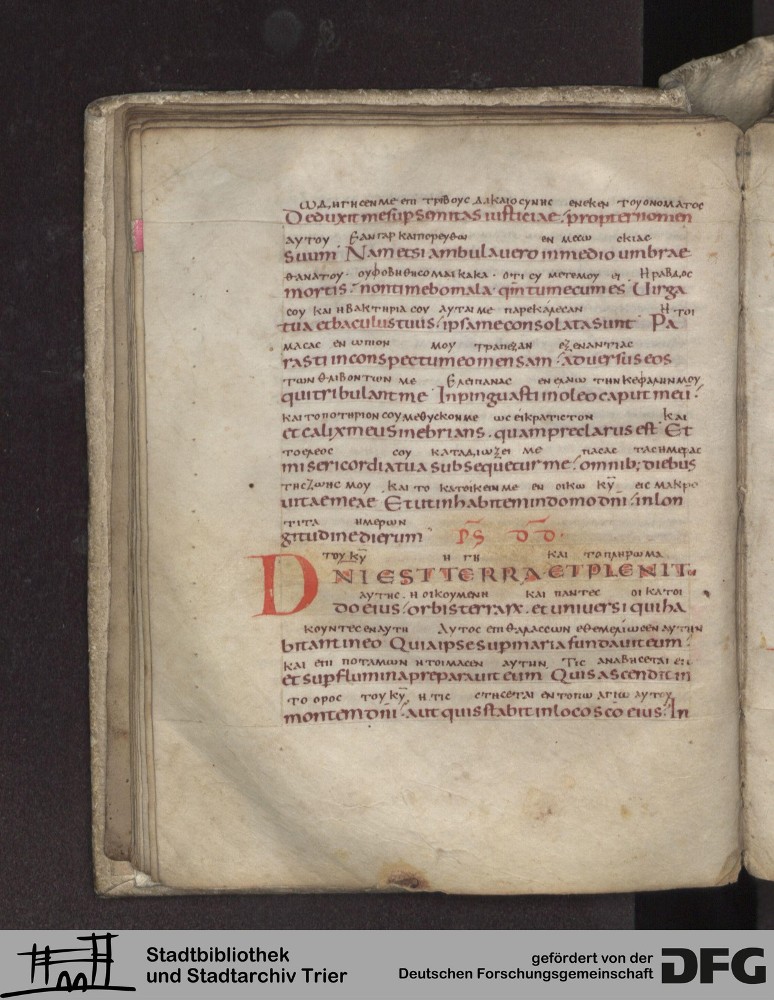 ωδηγησεν με επι τριβουσ δικαιοσυνησ ενεκεν του ονοματοσ
Deduxit me sup semitas iusticiae: propter nomen
αυτου εαν γαρ και πορευθω εν μεσω σκιασ
suum Nam etsi ambulauero in medio umbrae
θανατου· ου φοβηθησομαι κακα· οτι συ μετ εμου ει Η ραβδοσ
mortis: non timebo mala· qm̄ tu mecum es Uirga
σου και η βακτηρια σου αυται με παρεκαλεσαν Η τοι
tua et baculus tuus: ipsa me consolata sunt Pa
μασασ ενωπιον μου τραπεζαν εξ εναντιασ
rasti in conspectu meo mensam: aduersus eos
των θλιβοντων με Ελειπανασ εν ελαιω την κεφαλην μου
qui tribulant me Inpinguasti in oleo caput meū:
και το ποτηριον σου μεθυσκον με ωσ εικρατιστον και
et calix meus inebrians· quam preclarus est Et
το ελεοσ σου καταδιωξει με πασασ τασ ημερασ
misericordia tua subsequetur me: omnib; diebus
τησ ζωησ μου και το κατοικειν με εν οικω κ̄ῡ εισ μακρο
uitae meae Et ut inhabitem in domo dn̄i: in lon
τιτα ημερων
gitudine dierum P̄S D̄D·
του κ̄ῡ η γη και το πληρωμα
DNI EST TERRA ET PLENIT·
αυτησ· η οικουμενη και παντεσ οι κατοι
do eius: orbis terrarx· et uniuersi qui ha
κουντεσ εν αυτη Αυτοσ επι θαλασσων εθεμελιωσεν αυτην
bitant in eo Quia ipse sup maria fundauit eum:
και επι ποταμων ητοιμασεν αυτην Τισ αναβησεται εισ
et sup flumina preparauit eum Quis ascendit in
το οροσ του κ̄ῡ η τισ στησεται εν τοπω αγιω αυτου
montem dn̄i: aut quis stabit in loco scō eius: In
Stadtbibliothek
und Stadtarchiv Trier
gefördert von der
Deutschen Forschungsgemeinschaft
DFG